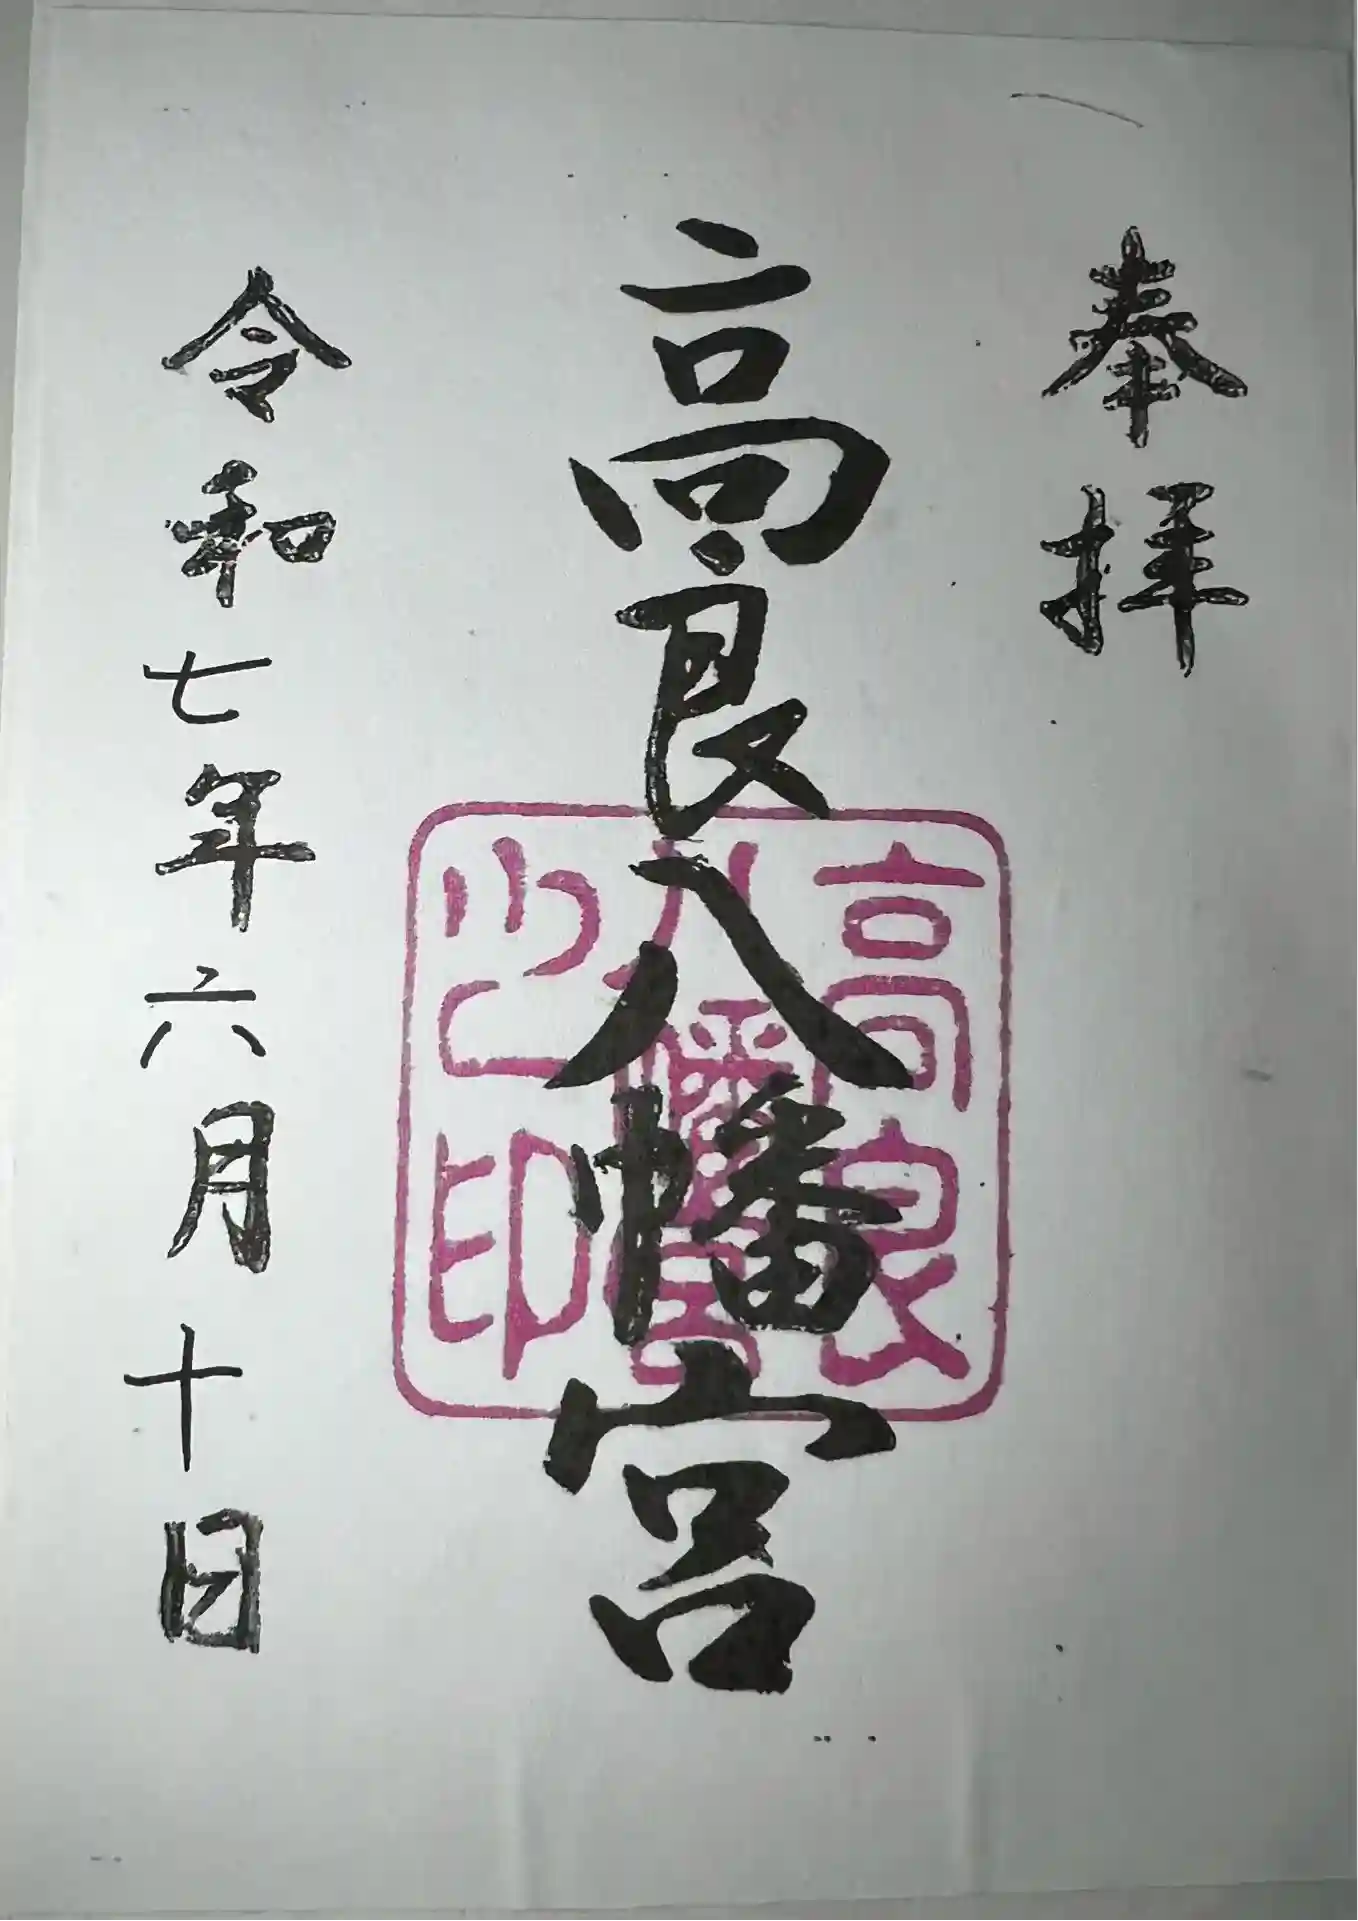 奉拝
高良八幡宮
高良
八幡宮
之印
令和七年六月十日